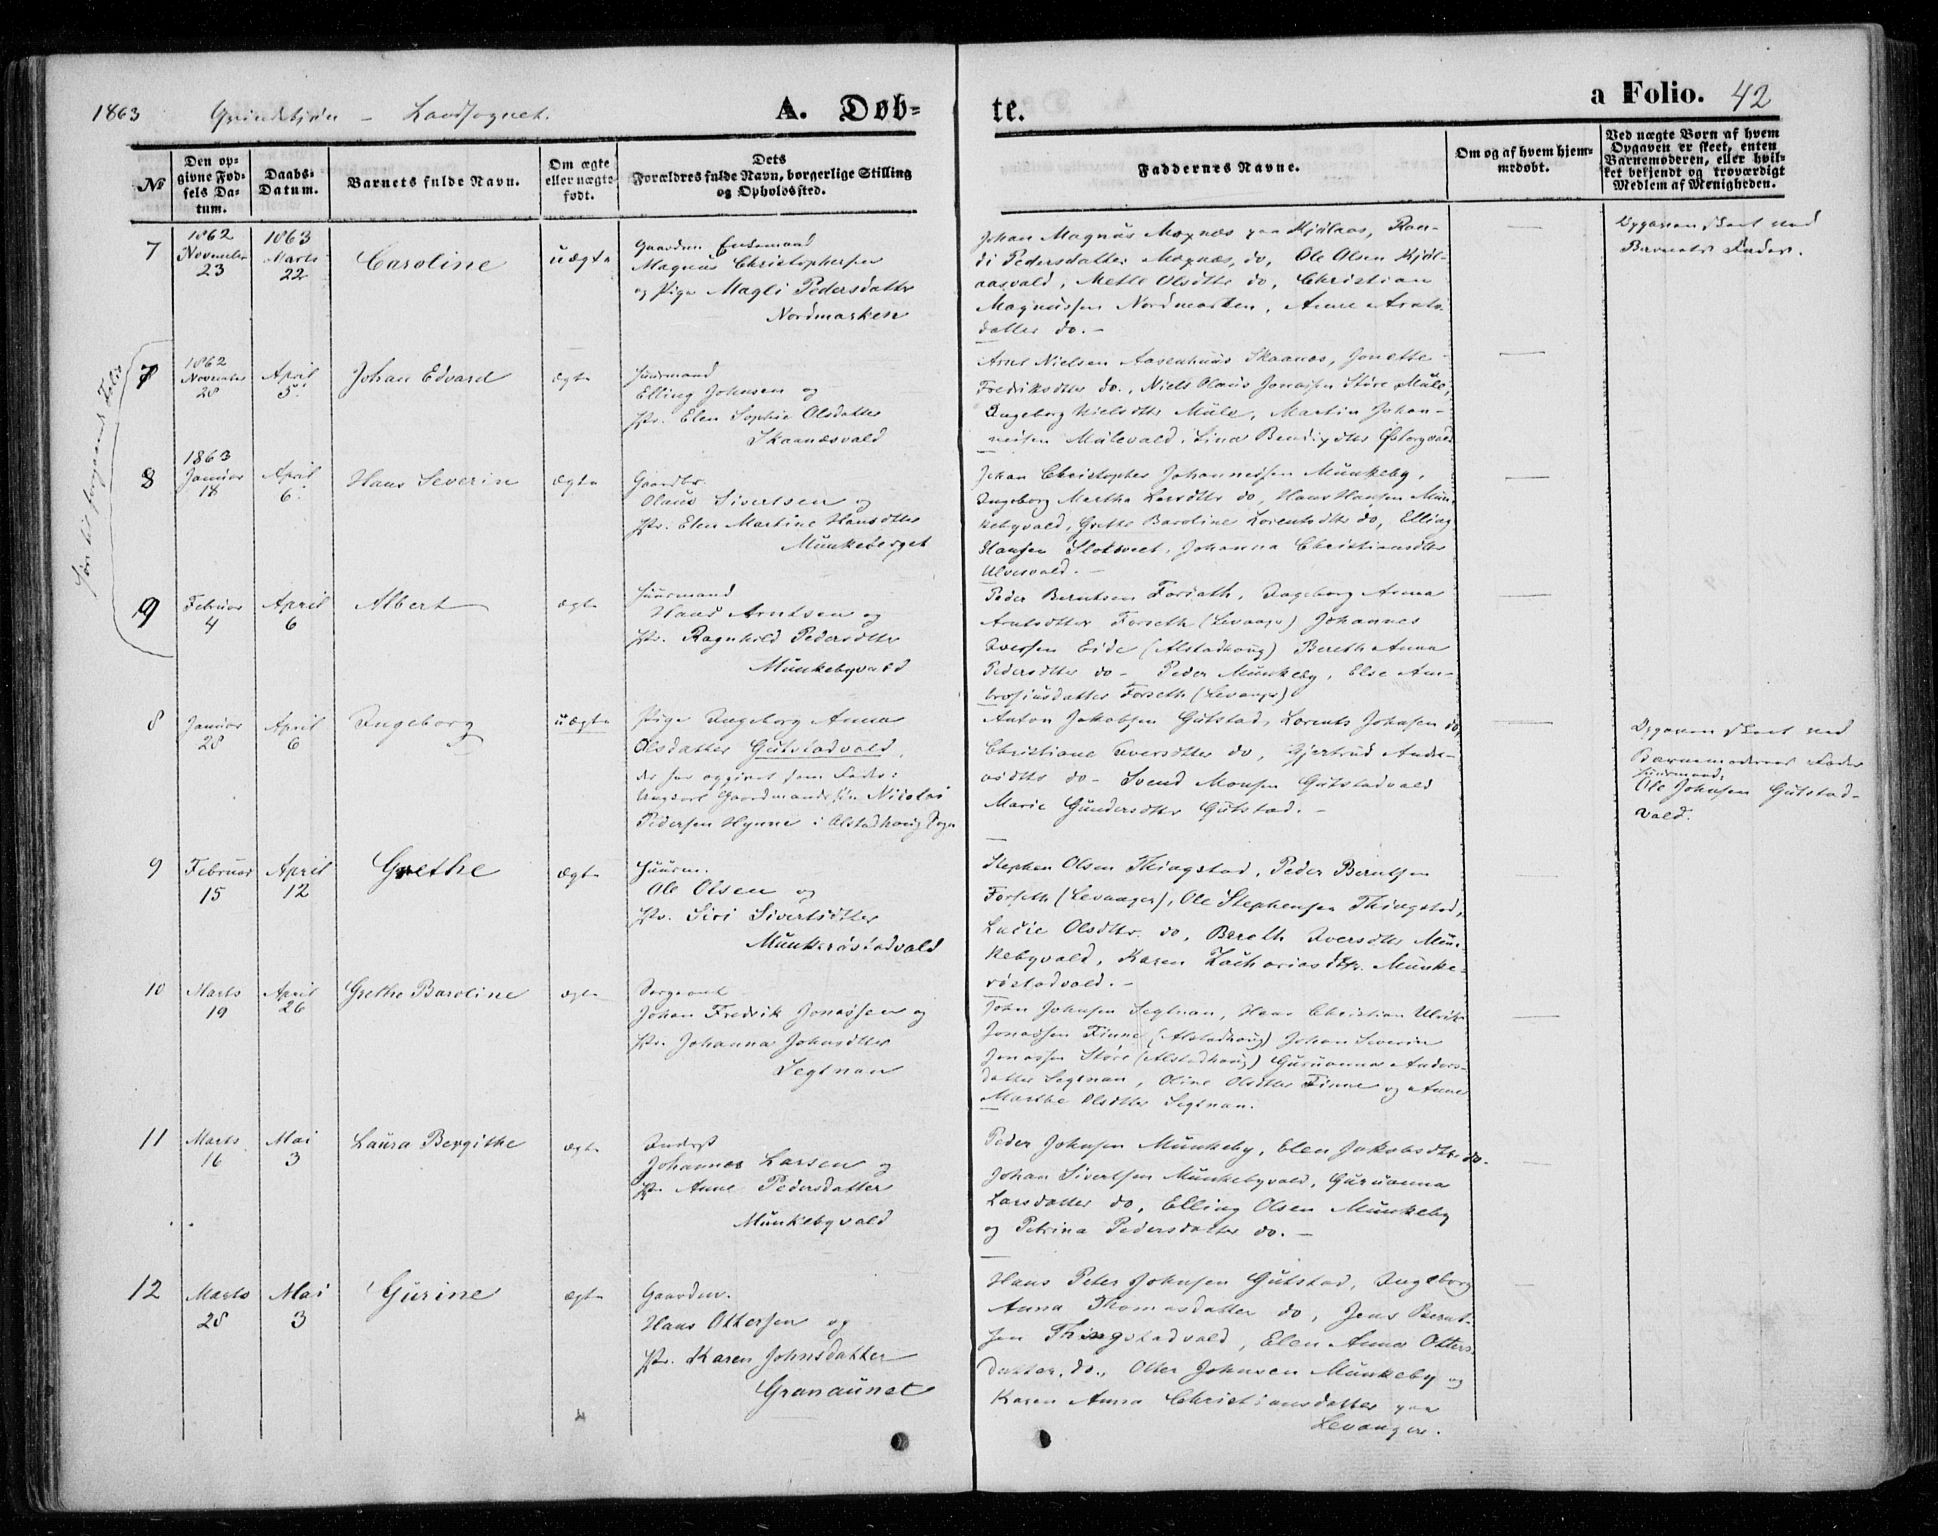 1863 Landsognet. A. Døb-
te. a Folio. 42
№
Den op-
givne Fød-
sels Da-
tum.
Daabs-
Datum.
Barnets fulde Navn.
Om ægte
eller uægte
født.
Dets
Forældres fulde Navn, borgerlige Stilling
og Opholdssted.
Faddernes Navne.
Om og af hvem hjem-
medøbt.
Ved uægte Børn af hvem
Opgaven er skeet, enten
Barnemoderen, eller hvil-
ket bekjendt og troværdigt
Medlem af Menigheden.
7
1862
November
23
1863
Marts
22
Caroline
uægte
Gaardm. Enkemand
Magnus Christophersen
og Pige Magli Pedersdatter
Nordmarken
Johan Magnus Moxnæs paa Kjølaas, Ran-
di Pedersdatter Moxnæs, do, Ole Olsen Kjøl-
aasvald, Mette Olsdtr do, Christian
Magnussen Nordmarken, Anne Arnts-
datter do. -
Opgaven skeet ved
Barnets Fader.
7
1862
November
28
April
5.
Johan Edvard
ægte
Huusmand
Elling Johnsen og
Elen Sophie Olsdatter
Skaanæsvald
Arnt Nielsen Aasenhuus Skaanes, Jonette
Fredriksdtr do., Niels Olaus Jonassen Støre Mule,
Ingeborg Nielsdtr Mule, Martin Johan-
nesen Mulevald, Lina Bendixdtr
8
1863
Januar
18
April
6.
Hans Severin
ægte
Gaardbr.
Olaus Sivertsen og
Elen Martine Hansdtr
Munkeberget
Johan Christopher Johannessen Munkeby,
Ingeborg Martha Larsdtr do, Hans Hansen Mun-
kebyvald, Grethe Baroline Lorentsdtr do, Elling
Hansen Slotsveet, Johanna Christiansdtr
Ulvesvald. -
9
Februar
4
April
6
Albert
ægte
Huusmand
Hans Arntsen og
Ragnhild Pedersdtr
Munkebyvald
Peder Berntsen Forseth, Ingeborg Anna
Arntsdtter Forseth (Levanger) Johannes
Iversen Eide (Alstadhoug) Bereth Anna
Pedersdtr do - Peder Munkeby, Else Am-
brosiusdatter Forseth (Levanger)
8
Januar
28
April
6
Ingeborg
uægte
Pige Ingeborg Anna
Olsdatter Gutstadvald,
der har opgivet som Fader:
Ungkarl Gaardmandssøn Nicolai
Pedersen Hynne i Alstadhoug Sogn
Anton Jakobsen Gutstad, Lorents Johnsen do,
Christiane Iversdtter do, Gjertrud Ander-
sdtr do - Svend Monsen Gutstadvald
Marie Gundersdtr Gutstad. -
Opgaven skeet ved
Barnemoderens Fader
Huusmand,
Ole Johnsen Gutstad-
vald.
9
Februar
15
April
12
Grethe
ægte
Huusm.
Ole Olsen og
Siri Sivertsdtter
Munkrøstadvald
Stephen Olsen Thingstad, Peder Berntsen
Forseth (Levanger), Ole Stephensen Thingstad,
Lucie Olsdtr. do, Bereth Iversdtr Mun-
kebyvald, Karen Zachariasdtr. Munke-
røstadvald. -
10
Marts
19
April
26
Grethe Baroline
ægte
Sergeant
Johan Fredrik Jonassen og
Johanna Johnsdtter
Segtnan
John Johnsen Segtnan, Hans Christian Ulrik
Jonassen Finne (Alstadhoug) Johan Severin
Jonassen Støre (Alstadhoug) Guruanna Anders-
datter Segtnan, Oline Olsdtter Finne og Anne
Marthe Olsdtter Segtnan.
11
Marts
16
Mai
3
Laura Bergithe
ægte
Inderst
Johannes Larsen og
Anne Pedersdatter
Munkebyvald
Peder Johnsen Munkeby, Elen Jakobsdtr do.
Johan Sivertsen Munkebyvald, Guruanna
Larsdatter do, Elling Olsen Munkeby
og Petrina Pedersdatter do. -
12
Marts
28
Mai
3
Gurine
ægte
Gaardm.
Hans Ottersen og
Karen Johnsdatter
Granaunet
Hans Peter Johnsen Gutstad, Ingeborg
Anna Thomasdatter do, Jens Bernt-
sen Thingstadvald, Elen Anna Otters-
datter, do., Otter Johnsen Munkeby og
Karen Anna Christiansdatter paa
Levanger.
hør til forgaaende Folio